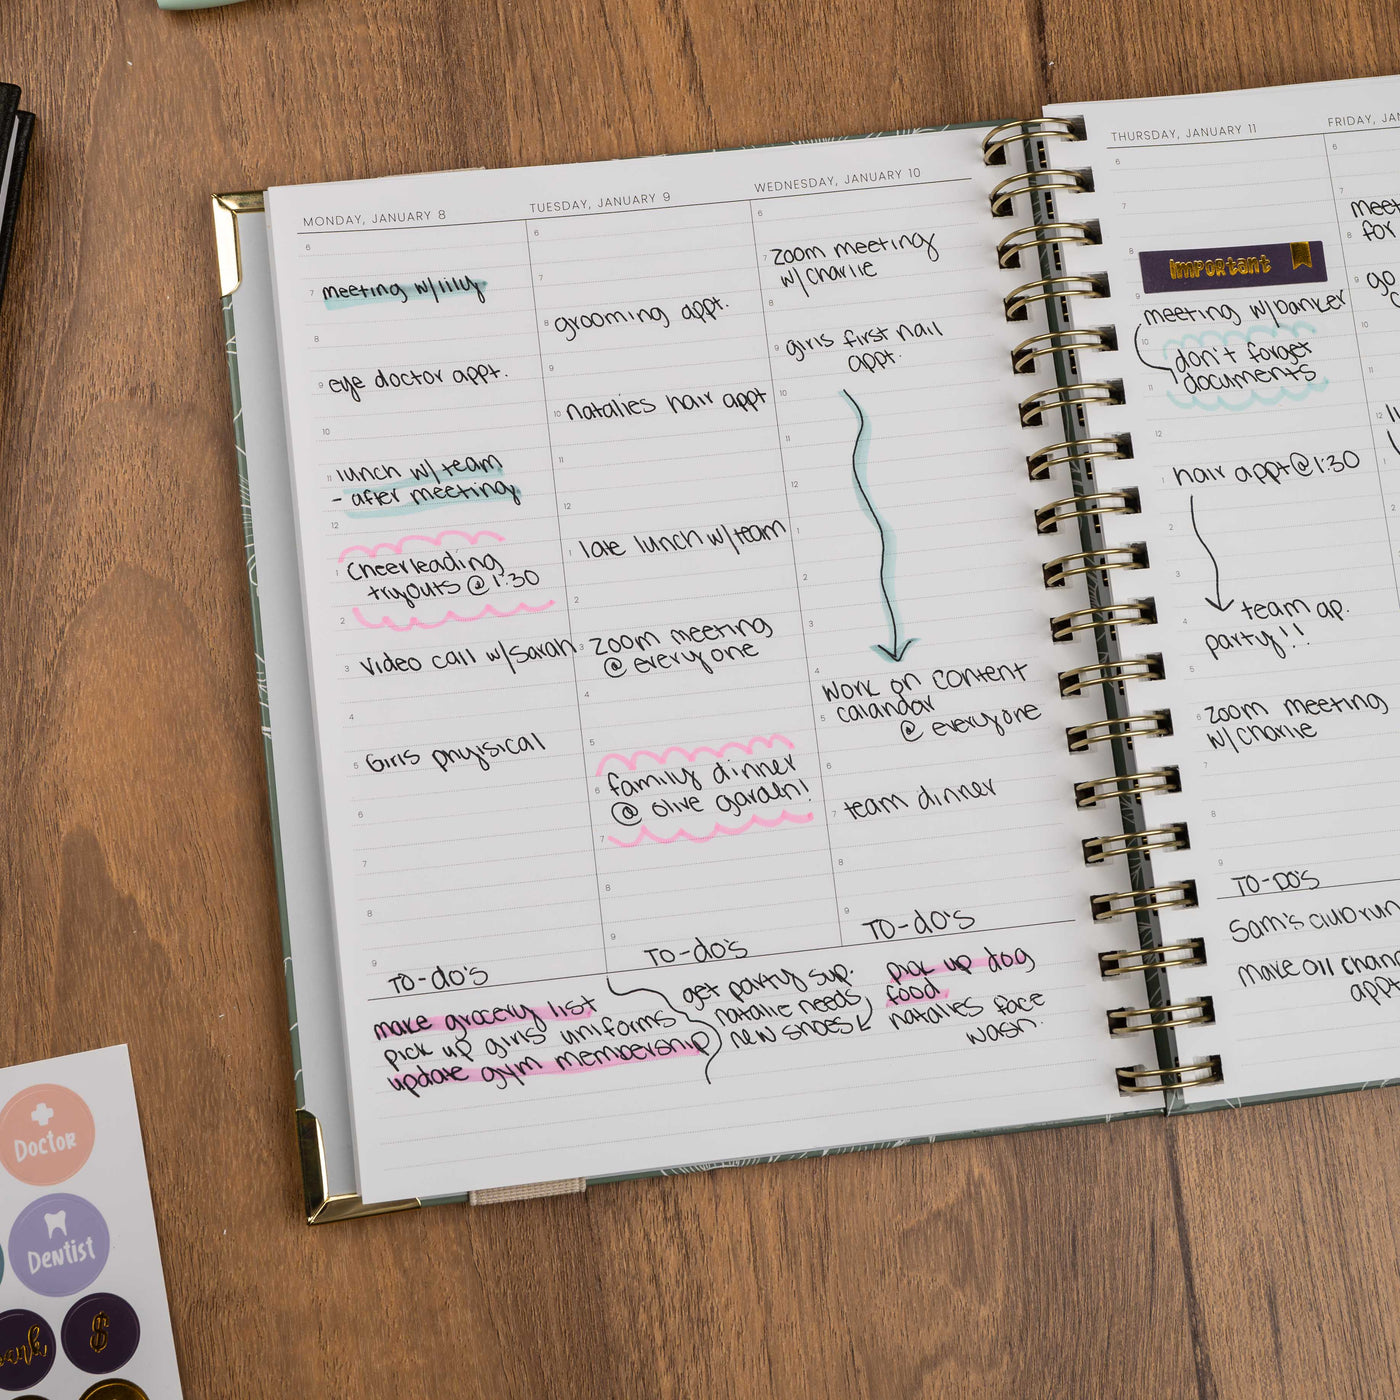 MONDAY, JANUARY 8
6
7 meeting w/lily
8
9 eye doctor appt.
10
11 lunch w/ team
- after meeting
12
Cheerleading
1 tryouts @ 1:30
2
3 video call w/Sarah
4
5 Girls phyisical
6
7
8
9
TO-do's
make grocery list
pick up girls uniforms
update gym membership
TUESDAY, JANUARY 9
6
7
8 grooming appt.
9
10 natalies hair appt
11
12
1 late lunch w/team
2
3 zoom meeting
@ everyone
4
5
family dinner
6 @ olive garden!
7
8
9
TO-do's
get party sup.
natalie needs
new shoes
WEDNESDAY, JANUARY 10
6
7 zoom meeting
w/charlie
8
9 girls first nail
appt.
10
11
12
1
2
3
4
work on content
5 calandar
@ everyone
6
7 team dinner
8
9
TO-do's
pick up dog
food
natalies face
wash.
THURSDAY, JANUARY 11
6
7
8
important
9
meeting w/banker
10
don't forget
11 documents
12
1 hair appt@1:30
2
3
team ap.
4 party!!
5
6 zoom meeting
w/charlie
7
8
9
TO-DO'S
Sam's club run
make oil
appt
FRIDAY,
6
8 for
9 go
10
11
12
1
2
Doctor
Dentist
$